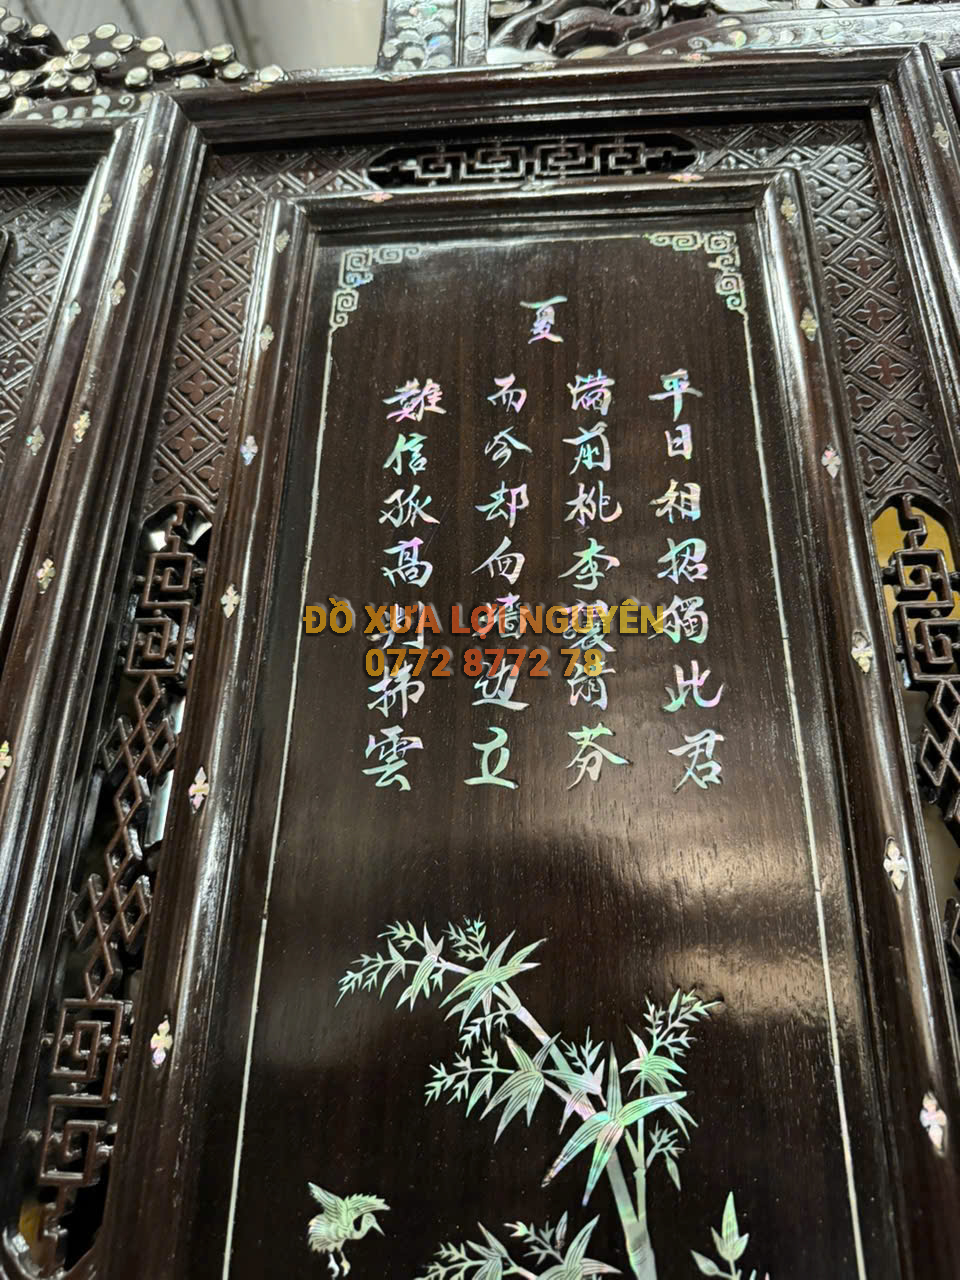 夏
平日相招此君
滿前桃李芬
而今却向墙边立
難信孤高拂雲
ĐỒ XƯA LỢI NGUYÊN
0772 8772 78